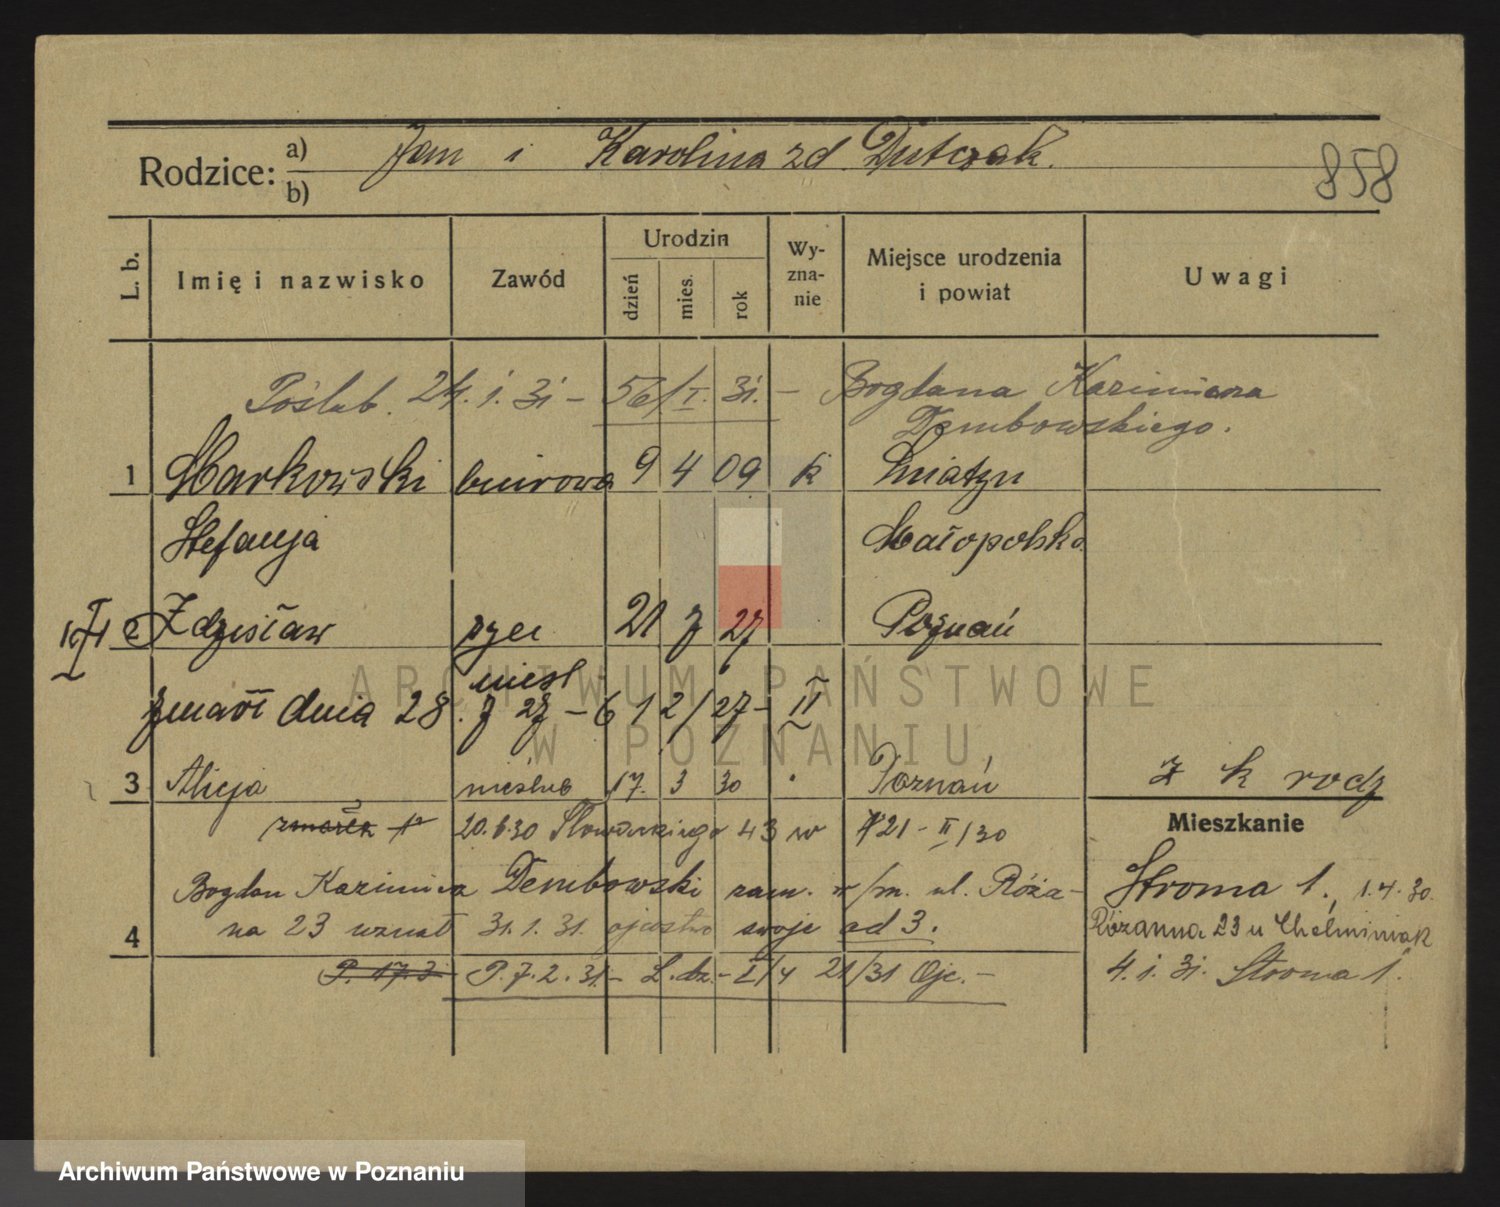 Rodzice: a) Jan i Karolina zd. Dutczak.
b)
858
L. b. Imię i nazwisko Zawód Urodzin dzień mies. rok Wyznanie Miejsce urodzenia i powiat Uwagi
Poślub. 24. 1. 31 – 56/I. 31. – Bogdana Kazimierza
Dembowskiego.
1 Markowski biurowa 9 4 09 k Śniatyn
Stefanja Małopolska
2 Zdzisław 21 7 27 Poznań
niesl
zmarł dnia 28. 7 27 – 612/27 – II
3 Alicja nieślub 17. 3 30 Poznań z k rodz
20.6.30 Słowackiego 43 w II/30
Mieszkanie
Bogdan Kazimierz Dembowski zam. w/m. ul. Róża-
4 na 23 uznał 31. 1. 31. ojcostwo swoje ad 3.
P. 17. 3 P. 7. 2. 31. – L. dz. – I/4 21/31 Ojc. –
Stroma 1., 1.4.30.
Różanna 23 u Chełminiak
4. 1. 31. Stroma 1.
ARCHIWUM PAŃSTWOWE
W POZNANIU
Archiwum Państwowe w Poznaniu